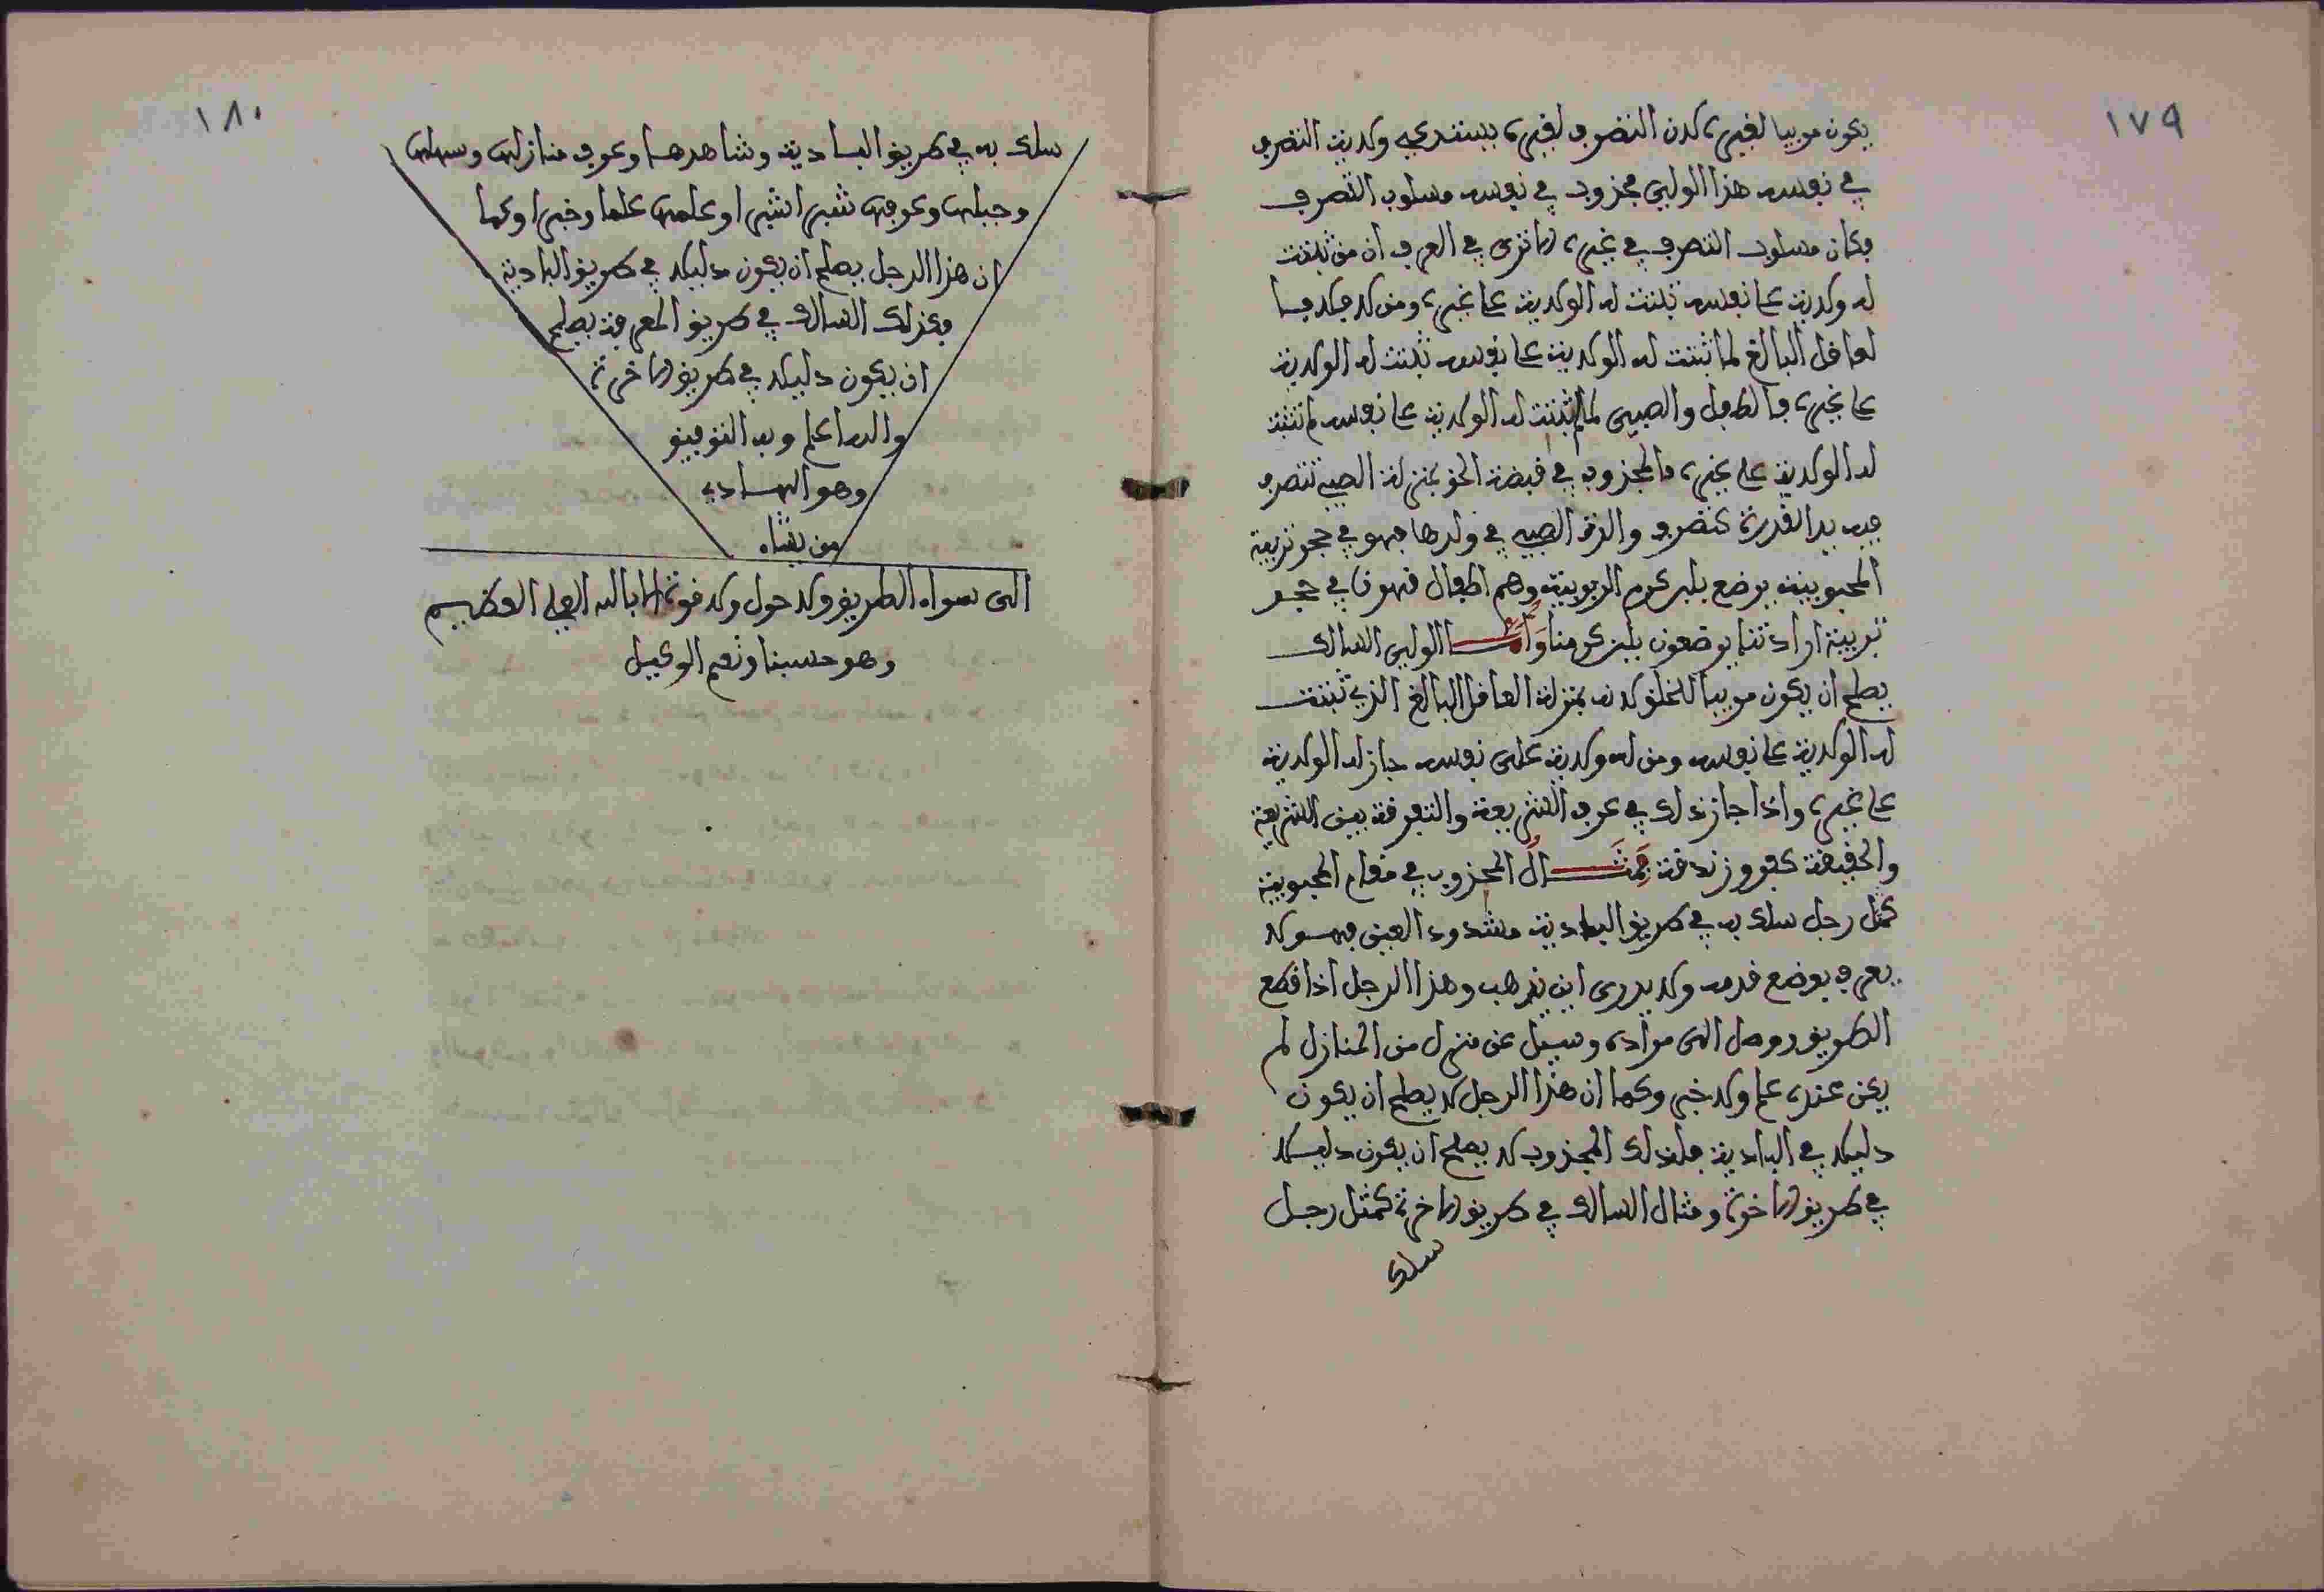 ١٧٩
يكون مربيا لغيره لان التصرف لغيره يستدعي ولاية التصرف
في نفسه هذا الولي مجذوب في نفسه مسلوب التصرف
فكان مسلوب التصرف في غيره الا ترى في العرف ان من ثبتت
له ولاية على نفسه ثبتت له الولاية على غيره ومن لا فلا فا
لعاقل البالغ لما ثبتت له الولاية على نفسه ثبتت له الولاية
على غيره والطفل والصبي لما لم تثبت له الولاية على نفسه لم تثبت
له الولاية على غيره فالمجذوب في قبضة الحق بمنزلة الصبي تتصرف
فيه يد القدرة كتصرف والدة الصبي في ولدها فهو في حجر تربية
المحبوبية يرضع بلبن كرم الربوبية وهم اطفال قهرنا في حجر
تربية ارادتنا يرضعون بلبن كرمنا وَأَمّـا الولي السالك
يصلح ان يكون مربيا للخلق لانه بمنزلة العاقل البالغ الذي ثبتت
له الولاية على نفسه ومن له ولاية على نفسه جاز له الولاية
على غيره واذا جاز ذلك في عرف الشريعة والتفرقة بين الشريعة
والحقيقة كفر وزندقة فَمِثَـالُ المجذوب في مقام المحبوبية
كمثل رجل سلك به في طريق البادية مشدود العين فهو لا
يعرف بوضع قدمه ولا يدرى اين يذهب وهذا الرجل اذا قطع
الطريق ووصل الى مراده وسيل عن منزل من المنازل لم
يكن عنده علم ولا خبر وكما ان هذا الرجل لا يصلح ان يكون
دليلا في البادية فكذلك المجذوب لا يصلح ان يكون دليلا
في طريق الاخرة ومثال السالك في طريق الاخرة كمثل رجل
سلك
١٨٠
سلك به في طريق البادية وشاهدها وعرف منازلها وسهلها
وجبلها وعرفها شبرا شبرا وعلمها علما وخبرا وكما
ان هذا الرجل يصلح ان يكون دليلا في طريق البادية
فكذلك السالك في طريق المعرفة يصلح
ان يكون دليلا في طريق الاخرة
والله اعلم وبه التوفيق
وهو الهادي
من يشاء
الى سواء الطريق ولا حول ولا قوة الا بالله العلي العظيم
وهو حسبنا ونعم الوكيل